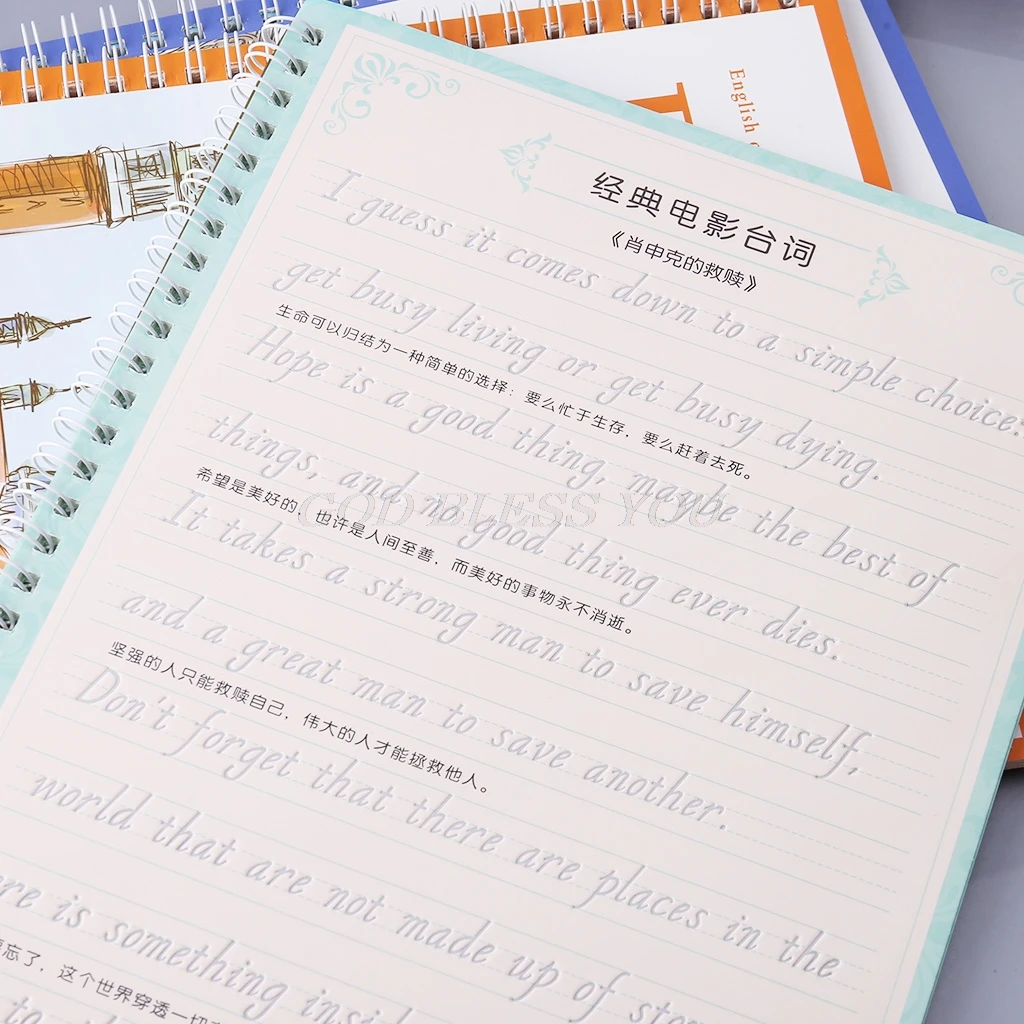 English
经典电影台词
《肖申克的救赎》
I guess it comes down to a simple choice:
get busy living or get busy dying.
生命可以归结为一种简单的选择：要么忙于生存，要么赶着去死。
Hope is a good thing, maybe the best of
things, and no good thing ever dies.
希望是美好的，也许是人间至善，而美好的事物永不消逝。
GOD BLESS YOU
It takes a strong man to save himself,
and a great man to save another.
坚强的人只能救赎自己，伟大的人才能拯救他人。
Don't forget that there are places in the
world that are not made up of
is something
忘了，这个世界穿透一切